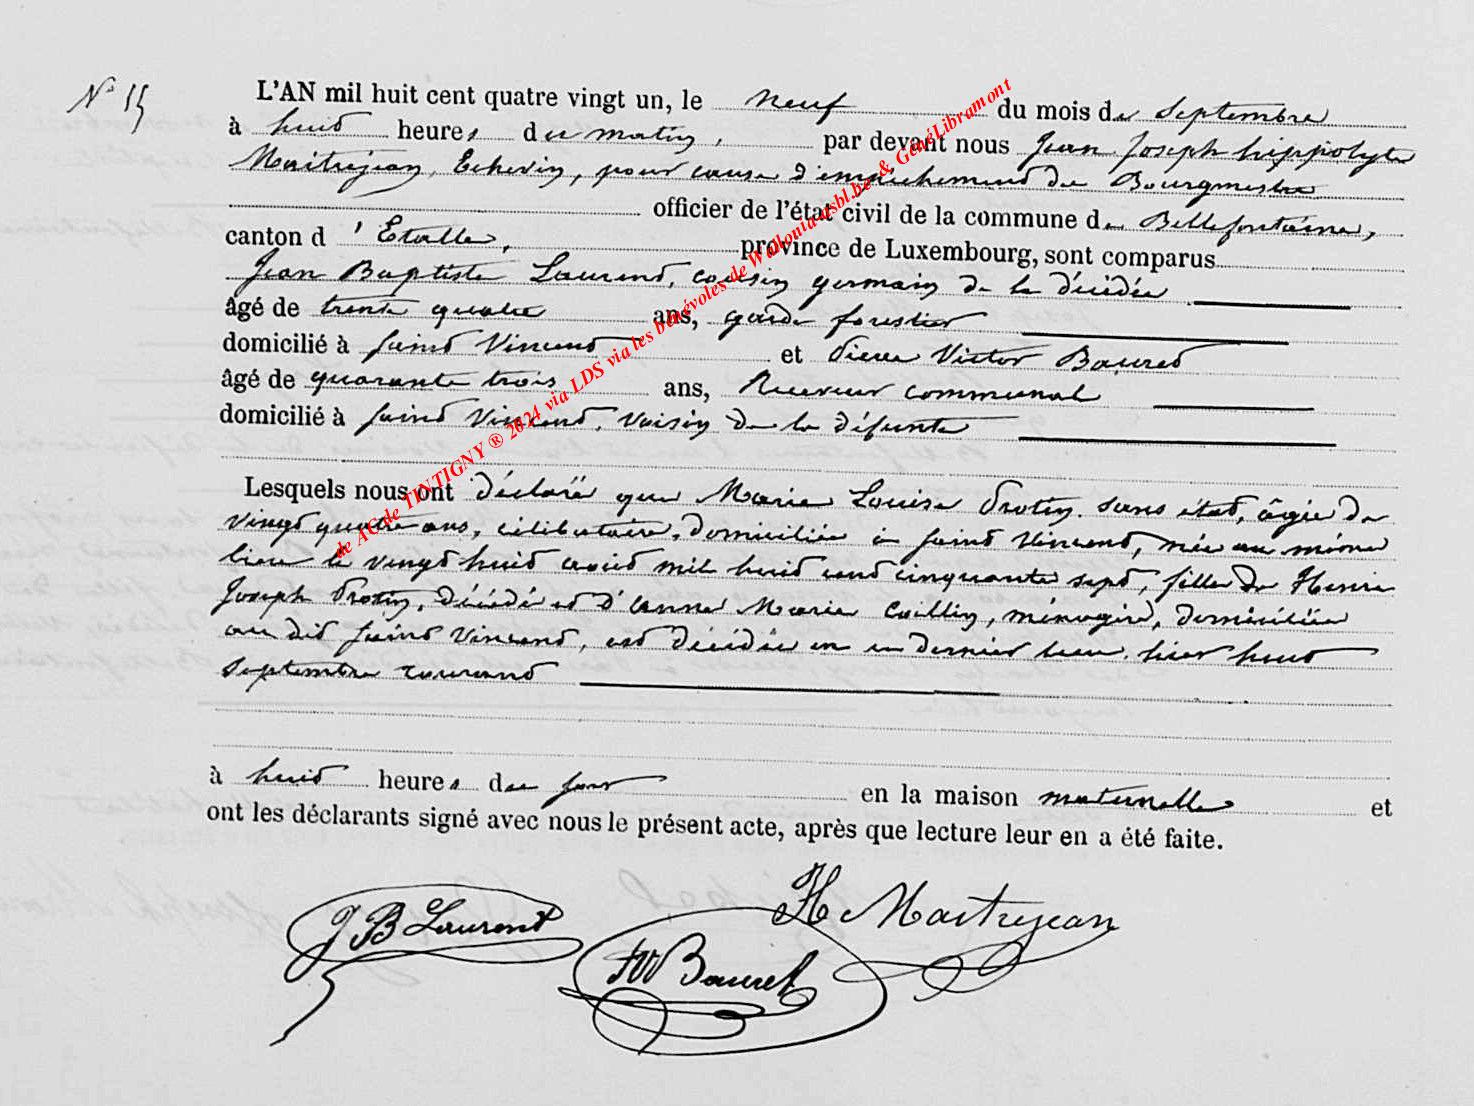 N° 15
L'AN mil huit cent quatre vingt un, le neuf du mois de Septembre
à huit heures du matin, par devant nous Jean Joseph hippolyte
Maitrejean, Echevin, pour cause d'empêchement du Bourgmestre
officier de l'état civil de la commune de Bellefontaine,
canton d'Etalle, province de Luxembourg, sont comparus
Jean Baptiste Laurent, cousin germain de la décédée
âgé de trente quatre ans, garde forestier
domicilié à Saint Vincent et Pierre Victor Bauret
âgé de quarante trois ans, Receveur communal
domicilié à Saint Vincent, voisin de la défunte
Lesquels nous ont déclaré que Marie Louise Protin, sans état, âgée de
vingt quatre ans, célibataire, domiciliée à Saint Vincent, née au même
lieu le vingt huit août mil huit cent cinquante sept, fille de Henri
Joseph Protin, décédé et d'Anne Marie Caillin, ménagère, domiciliée
au dit Saint Vincent, est décédée en ce dernier lieu, hier huit
Septembre courant
à huit heures du soir en la maison maternelle et
ont les déclarants signé avec nous le présent acte, après que lecture leur en a été faite.
J B Laurent
H Maitrejean
Bauret
de AC de TINTIGNY ® 2024 via LDS via les bénévoles de Wallonia asbl.be & GénéLibramont